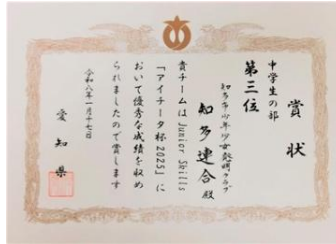 賞状
中学生の部
第三位
知多市少年少女発明クラブ
知多連合殿
貴チームはJunior Skills
「アイチータ杯2025」に
おいて優秀な成績を収め
られましたので賞します
令和八年一月十七日
愛知県